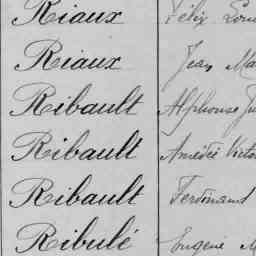 Riaux Félix Loui
Riaux Jean Ma
Ribault Alphonse Ju
Ribault Amédée Victo
Ribault Ferdinand
Ribulé Eugène M